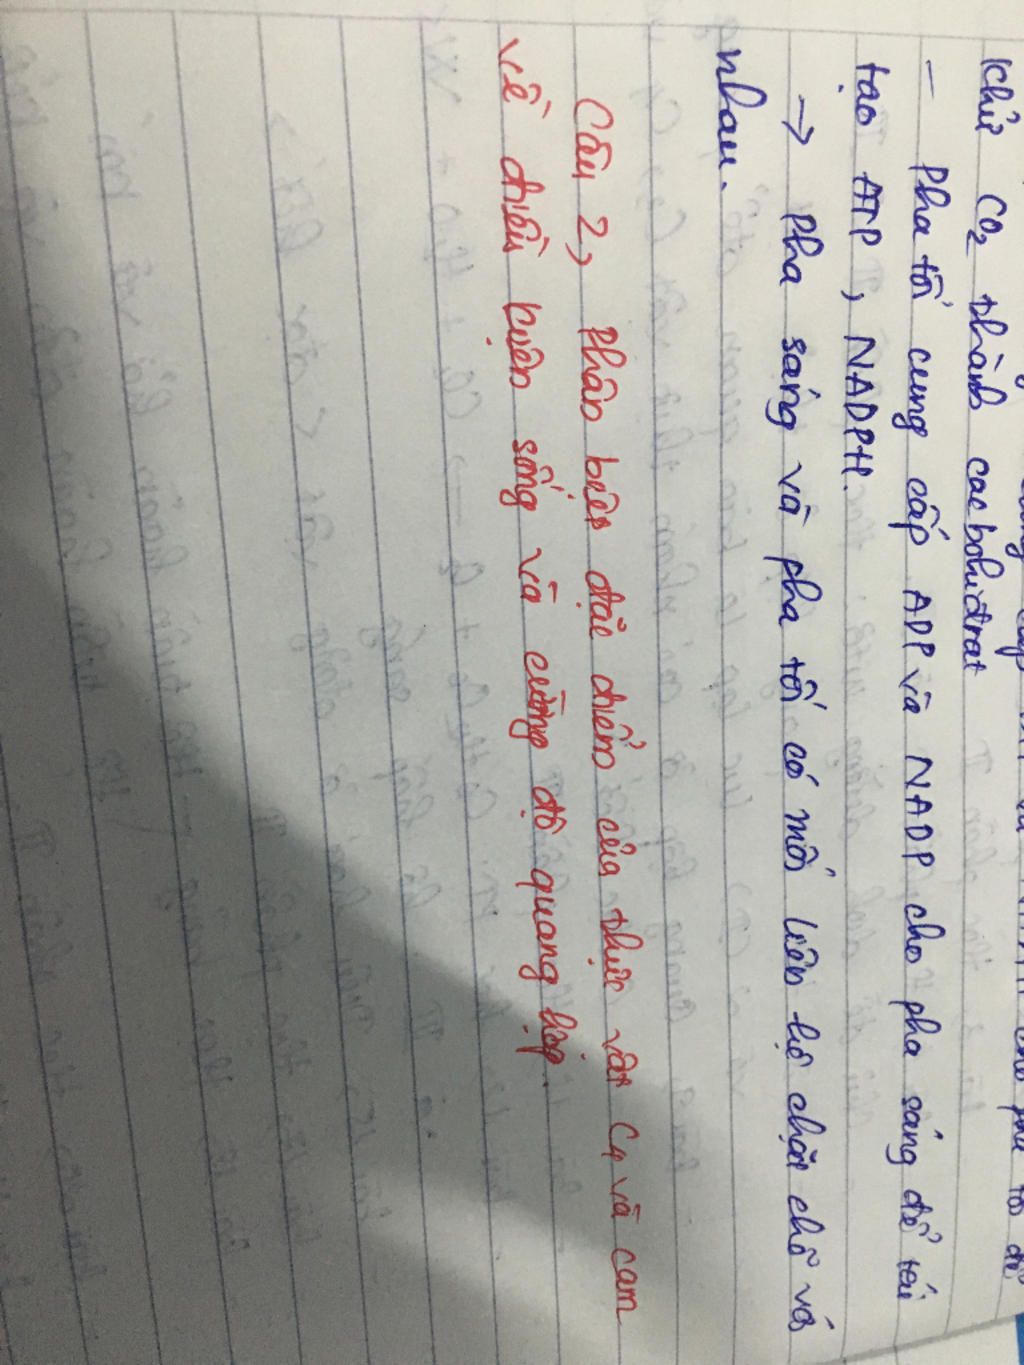 khử CO2 thành cacbohiđrat
- Pha tối cung cấp ADP và NADP cho pha sáng để tái
tạo ATP, NADPH.
→ Pha sáng và pha tối có mối liên hệ chặt chẽ với
nhau.
Câu 2, Phân biệt đặc điểm của thực vật C4 và cam
về điều kiện sống và cường độ quang hợp.